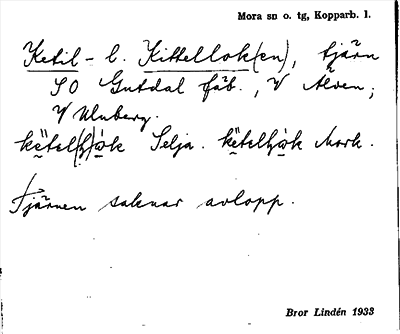 Mora sn o. tg, Kopparb. l.
Ketil- l. Kittellok(en), tjärn
SO Gutdal fäb., V Älven,
V Uluberg.
Selja. Mork.
Tjärnen saknar avlopp.
Bror Lindén 1933